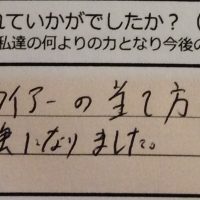 れていかがでしたか？（
私達の何よりの力となり今後の
イアーの当て方
になりました。